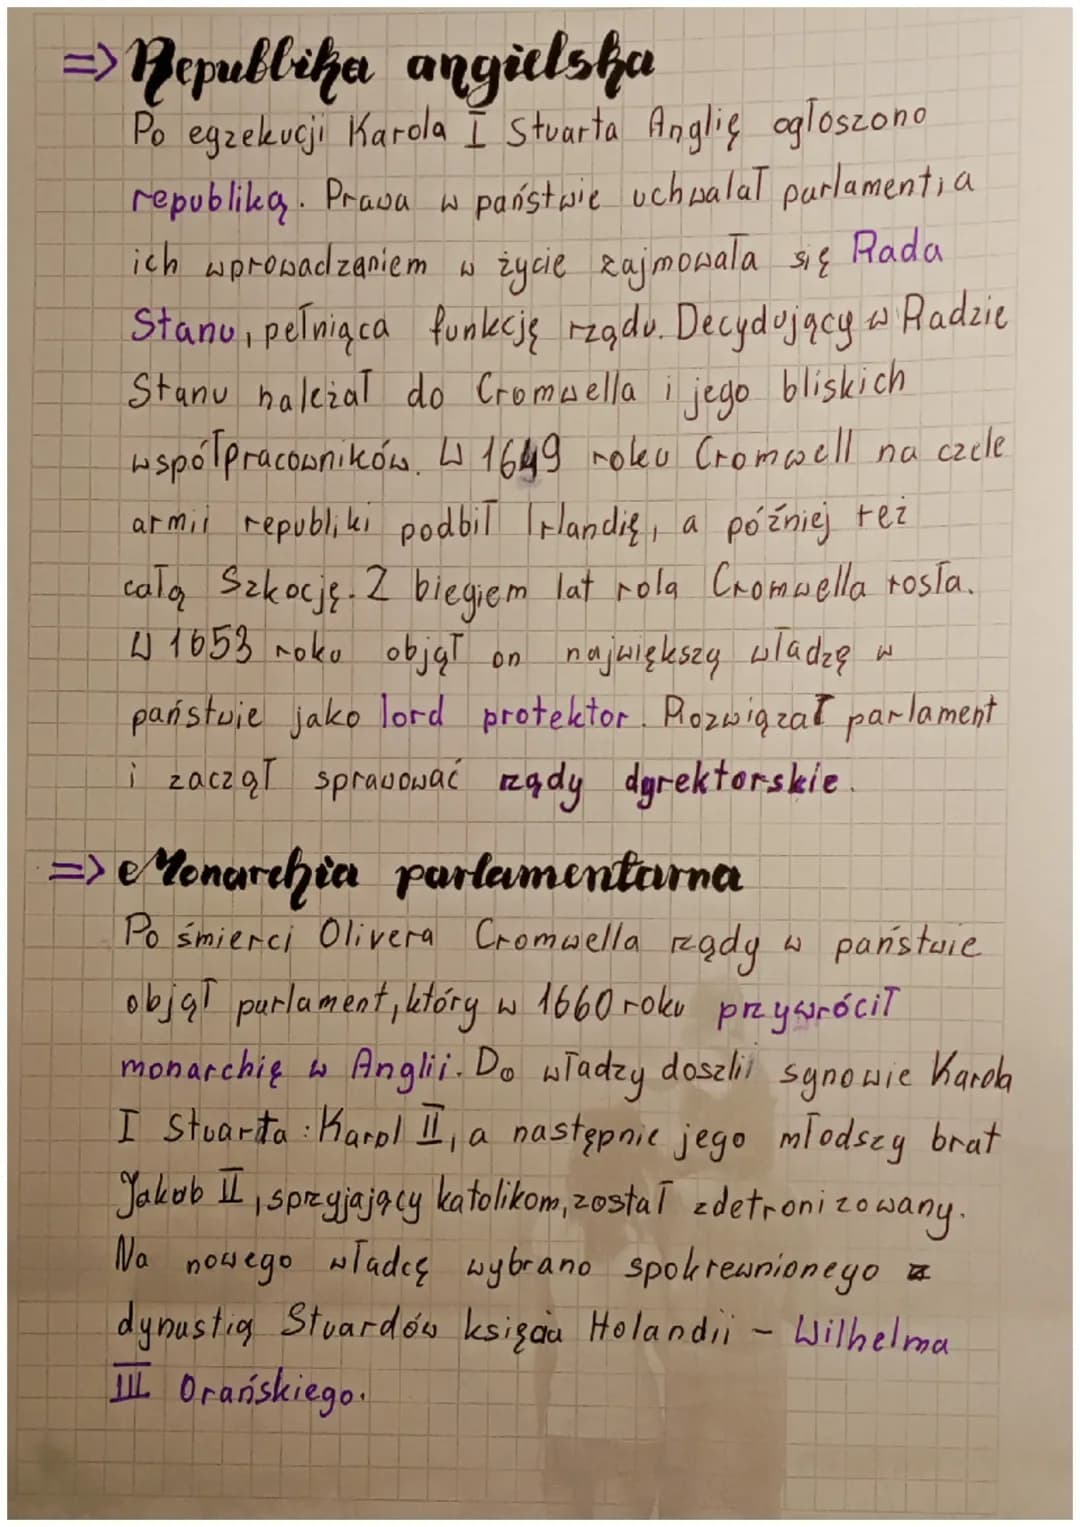 => Republika angielska
Po egzekucji Karola I Stuarta Anglię ogłoszono
republiką. Prawa w państwie uchwalał parlament, a
ich wprowadzaniem w życie zajmowała się Rada
Stanu, pełniąca funkcję rządu. Decydujący w Radzie
Stanu należał do Cromwella i jego bliskich
współpracowników. W 1649 roku Cromwell na czele
armii republiki podbił Irlandię, a później też
całą Szkocję. Z biegiem lat rola Cromwella rosła.
W 1653 roku objął on największą władzę w
państwie jako lord protektor. Rozwiązał parlament
i zaczął sprawować rządy dyrektorskie.
=> Monarchia parlamentarna
Po śmierci Olivera Cromwella rządy w państwie
objął parlament, który w 1660 roku przywrócił
monarchię w Anglii. Do władzy doszli synowie Karola
I Stuarta: Karol II, a następnie jego młodszy brat
Jakub II, sprzyjający katolikom, został zdetronizowany.
Na nowego władcę wybrano spokrewnionego z
dynastią Stuardów księcia Holandii - Wilhelma
III Orańskiego.